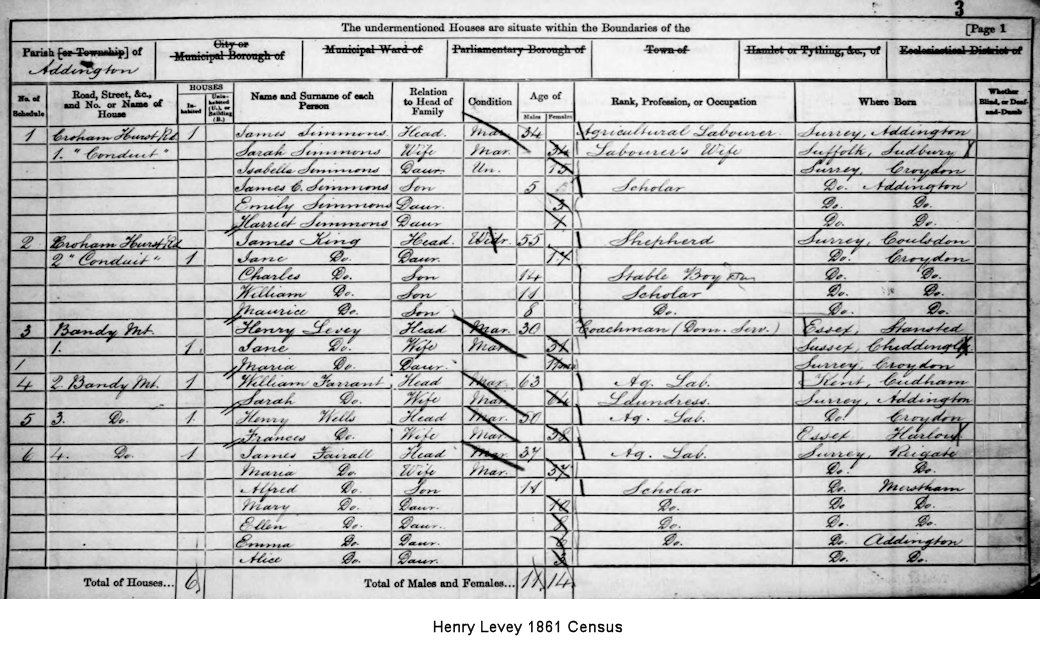 3
The undermentioned Houses are situate within the Boundaries of the [Page 1
Parish [or Township] of City or Municipal Borough of Municipal Ward of Parliamentary Borough of Town of Hamlet or Tything, &c., of Ecclesiastical District of
Addington
No. of Schedule Road, Street, &c., and No. or Name of House HOUSES Inhabited Uninhabited (U.), or Building (B.) Name and Surname of each Person Relation to Head of Family Condition Age of Males Females Rank, Profession, or Occupation Where Born Whether Blind, or Deaf-and-Dumb
1 Croham Hurst Rd 1 James Simmons Head Mar. 34 Agricultural Labourer Surrey, Addington
1. "Conduit" Sarah Simmons Wife Mar. 34 Labourer's Wife Suffolk, Sudbury
Isabella Simmons Daur. Un. 15 Surrey, Croydon
James C. Simmons Son 5 Scholar Do. Addington
Emily Simmons Daur. 3 Do. Do.
Harriet Simmons Daur Do. Do.
2 Croham Hurst Rd James King Head. Widr. 55 Shepherd Surrey, Coulsdon
2 "Conduit" 1 Jane Do. Daur. 17 Do. Croydon
Charles Do. Son 14 Stable Boy Do. Do.
William Do. Son 11 Scholar Do. Do.
Maurice Do. Son 8 Do. Do. Do.
3 Bandy Mt. Henry Levey Head Mar. 30 Coachman (Dom. Serv.) Essex, Stansted
1. 1 Jane Do. Wife Mar. 31 Sussex,
1 Maria Do. Daur. Surrey, Croydon
4 2 Bandy Mt. 1 William Farrant Head Mar. 63 Ag. Lab. Kent, Cudham
Sarah Do. Wife Mar. 64 Laundress. Surrey, Addington
5 3. Do. 1 Henry Wells Head Mar. 50 Ag. Lab. Do. Croydon
Frances Do. Wife Mar. 38 Essex Harlow
6 4. Do. 1 James Fairall Head Mar. 37 Ag. Lab. Surrey, Reigate
Maria Do. Wife Mar. 37 Do. Do.
Alfred Do. Son 11 Scholar Do. Merstham
Mary Do. Daur. 10 Do. Do. Do.
Ellen Do. Daur. 8 Do. Do. Do.
Emma Do. Daur. Do. Do. Addington
Alice Do. Daur. 3 Do. Do.
Total of Houses... 6 Total of Males and Females... 11 14
Henry Levey 1861 Census